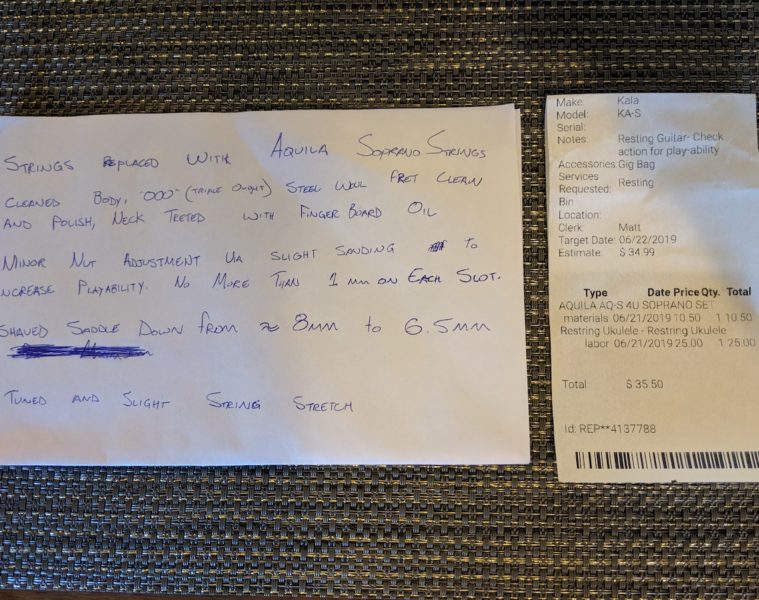 STRINGS REPLACED WITH AQUILA SOPRANO STRINGS
CLEANED BODY, "000" (TRIPLE OUGHT) STEEL WOUL FRET CLEAN
AND POLISH, NECK TRETED WITH FINGER BOARD OIL
MINOR NUT ADJUSTMENT VIA SLIGHT SANDING TO
INCREASE PLAYABILITY. NO MORE THAN 1 MM ON EACH SLOT.
SHAVED SADDLE DOWN FROM ≈ 8MM TO 6.5MM
TUNED AND SLIGHT STRING STRETCH
Make: Kala
Model: KA-S
Serial:
Notes: Resting Guitar- Check
action for play-ability
Accessories: Gig Bag
Services
Requested: Resting
Bin
Location:
Clerk: Matt
Target Date: 06/22/2019
Estimate: $ 34.99
Type Date Price Qty. Total
AQUILA AQ-S 4U SOPRANO SET
materials 06/21/2019 10.50 1 10.50
Restring Ukulele - Restring Ukulele
labor 06/21/2019 25.00 1 25.00
Total: $ 35.50
Id: REP**4137788